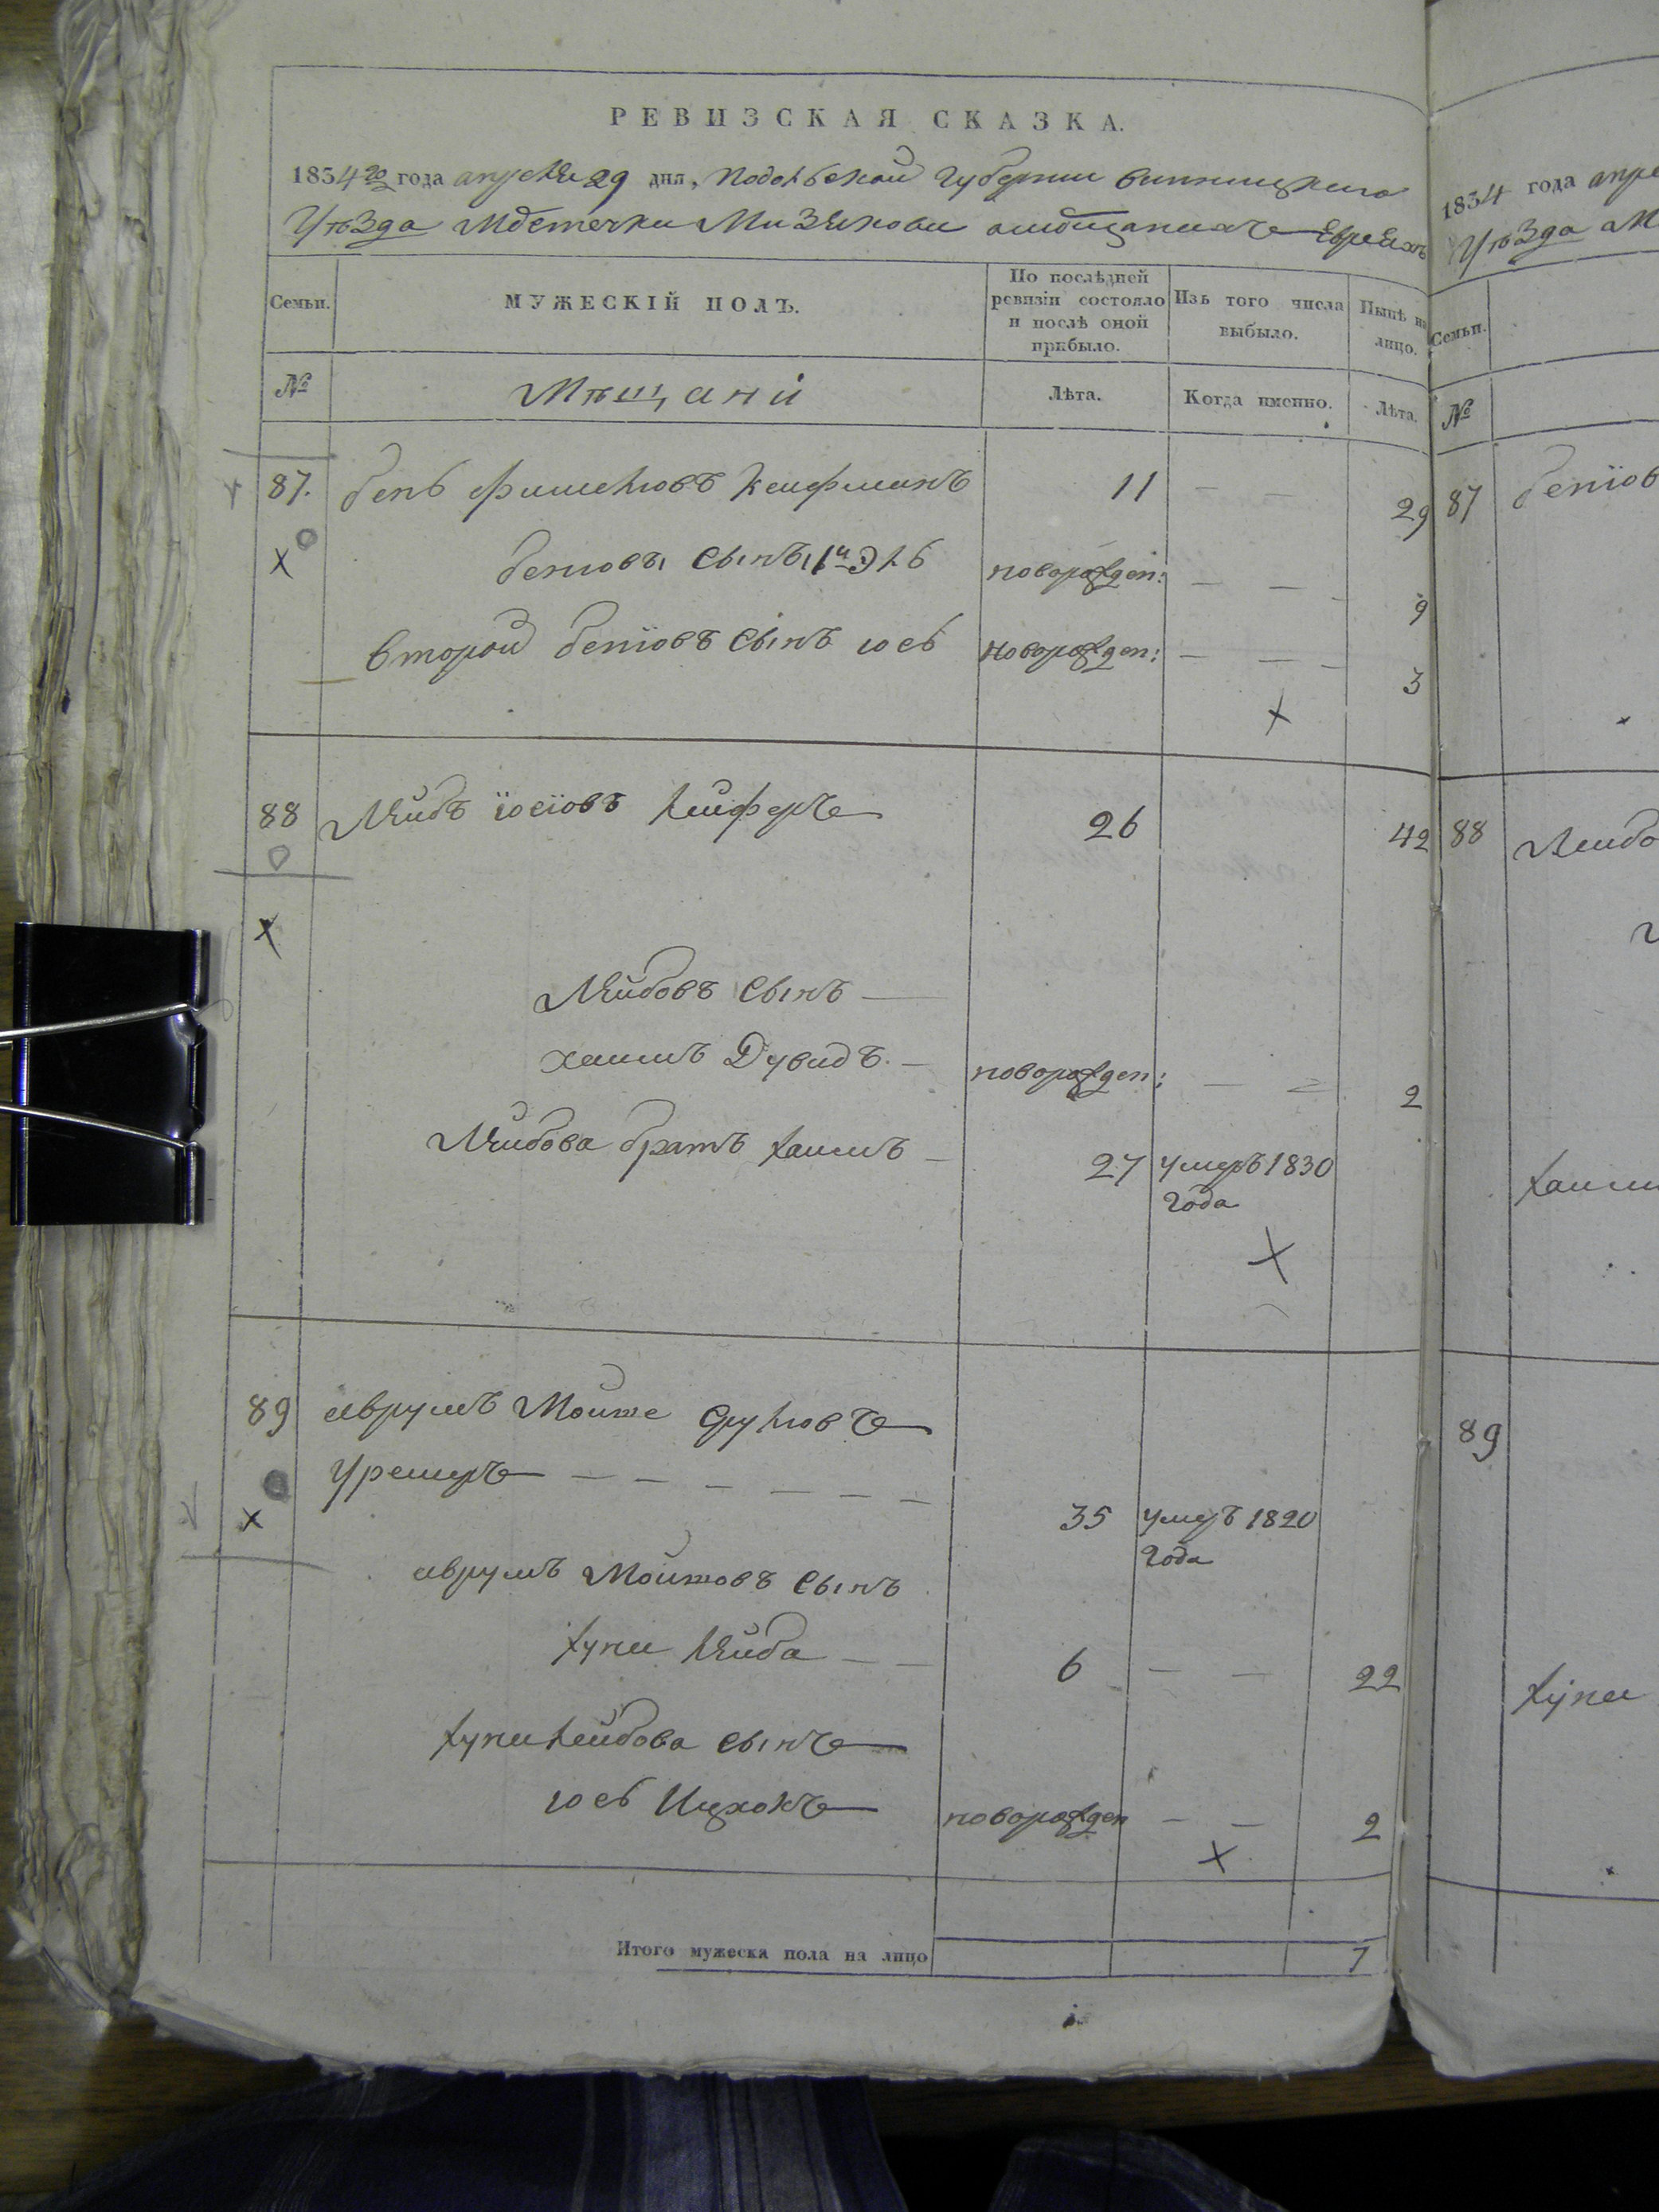 РЕВИЗСКАЯ СКАЗКА.
1834 го года апреля 29 дня, Подольской Губернии Винницкого
Уѣзда Мѣстечки Мизякова о мѣщанахъ Евреяхъ
Семьи.
МУЖЕСКІЙ ПОЛЪ.
По послѣдней ревизіи состояло и послѣ оной прибыло.
Изъ того числа выбыло.
Нынѣ на лицо.
№
Мѣщани
Лѣта.
Когда именно.
Лѣта.
87. Бень Фишелювъ Кауфманъ 11 — — 29
Бенювы сыны 1й Эль новорожден: — — 9
Второй Беніовъ сынъ Іось новорожден: — — 3
88 Лейбъ Іосіовъ Лейферъ 26 42
Лейбовъ сынъ —
Хаимъ Дувидъ — новорожден: — — 2
Лейбова братъ Хаимъ — 27 умеръ 1830
года
89 Аврумъ Мошке Сруліовъ
— — — — — —
35 умеръ 1820
года
Аврумъ Мошковъ сынъ
Хуни Лейба — — 6 — — 22
Хуни Лейбова сынъ
Іось Ицхокъ новорожден — — 2
Итого мужеска пола на лицо 7
1834 года апре
Уѣзда М
Семьи.
№
87 Беніов
88 Лейбо
Хаим
89
Хуни